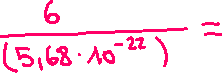 6
(5,68 · 10⁻²²) =